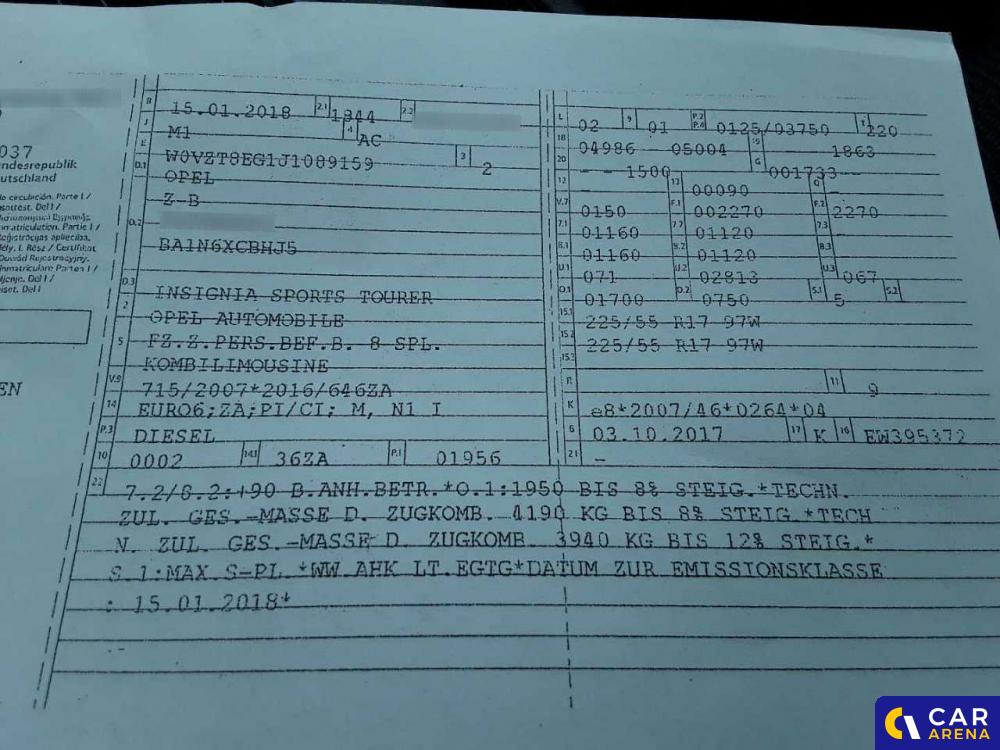 037
ndesrepublik
utschland
B 15.01.2018 2.1 1844 2.2
J M1 4 AC
E W0VZT8EG1J1089159 3 2
D.1 OPEL
Z-B
D.2
BA1N6XCBHJ5
D.3 INSIGNIA SPORTS TOURER
2 OPEL AUTOMOBILE
5 FZ.Z.PERS.BEF.B. 8 SPL.
KOMBILIMOUSINE
V.9 715/2007*2016/646ZA
14 EURO6;ZA;PI/CI; M, N1 I
P.3 DIESEL
10 0002 14.1 36ZA P.1 01956
L 02 9 01 P.2 P.4 0125/03750 T 220
18 04986 - 05004 19 1863
20 - - 1500 G 001733 -
12 - 13 00090 Q -
V.7 0150 F.1 002270 F.2 2270
7.1 01160 7.2 01120 7.3 -
8.1 01160 8.2 01120 8.3 -
U.1 071 U.2 02813 U.3 067
O.1 01700 O.2 0750 S.1 5 S.2 -
15.1 225/55 R17 97W
15.2 225/55 R17 97W
15.3 -
R 11 9
K e8*2007/46*0264*04
6 03.10.2017 17 K 16 EW395372
21 -
22 7.2/8.2:+90 B.ANH.BETR.*O.1:1950 BIS 8% STEIG.*TECHN.
ZUL. GES.-MASSE D. ZUGKOMB. 4190 KG BIS 8% STEIG.*TECH
N. ZUL. GES.-MASSE D. ZUGKOMB. 3940 KG BIS 12% STEIG.*
S.1:MAX.S-PL.*WW.AHK LT.EGTG*DATUM ZUR EMISSIONSKLASSE
: 15.01.2018*
EN
CAR
ARENA